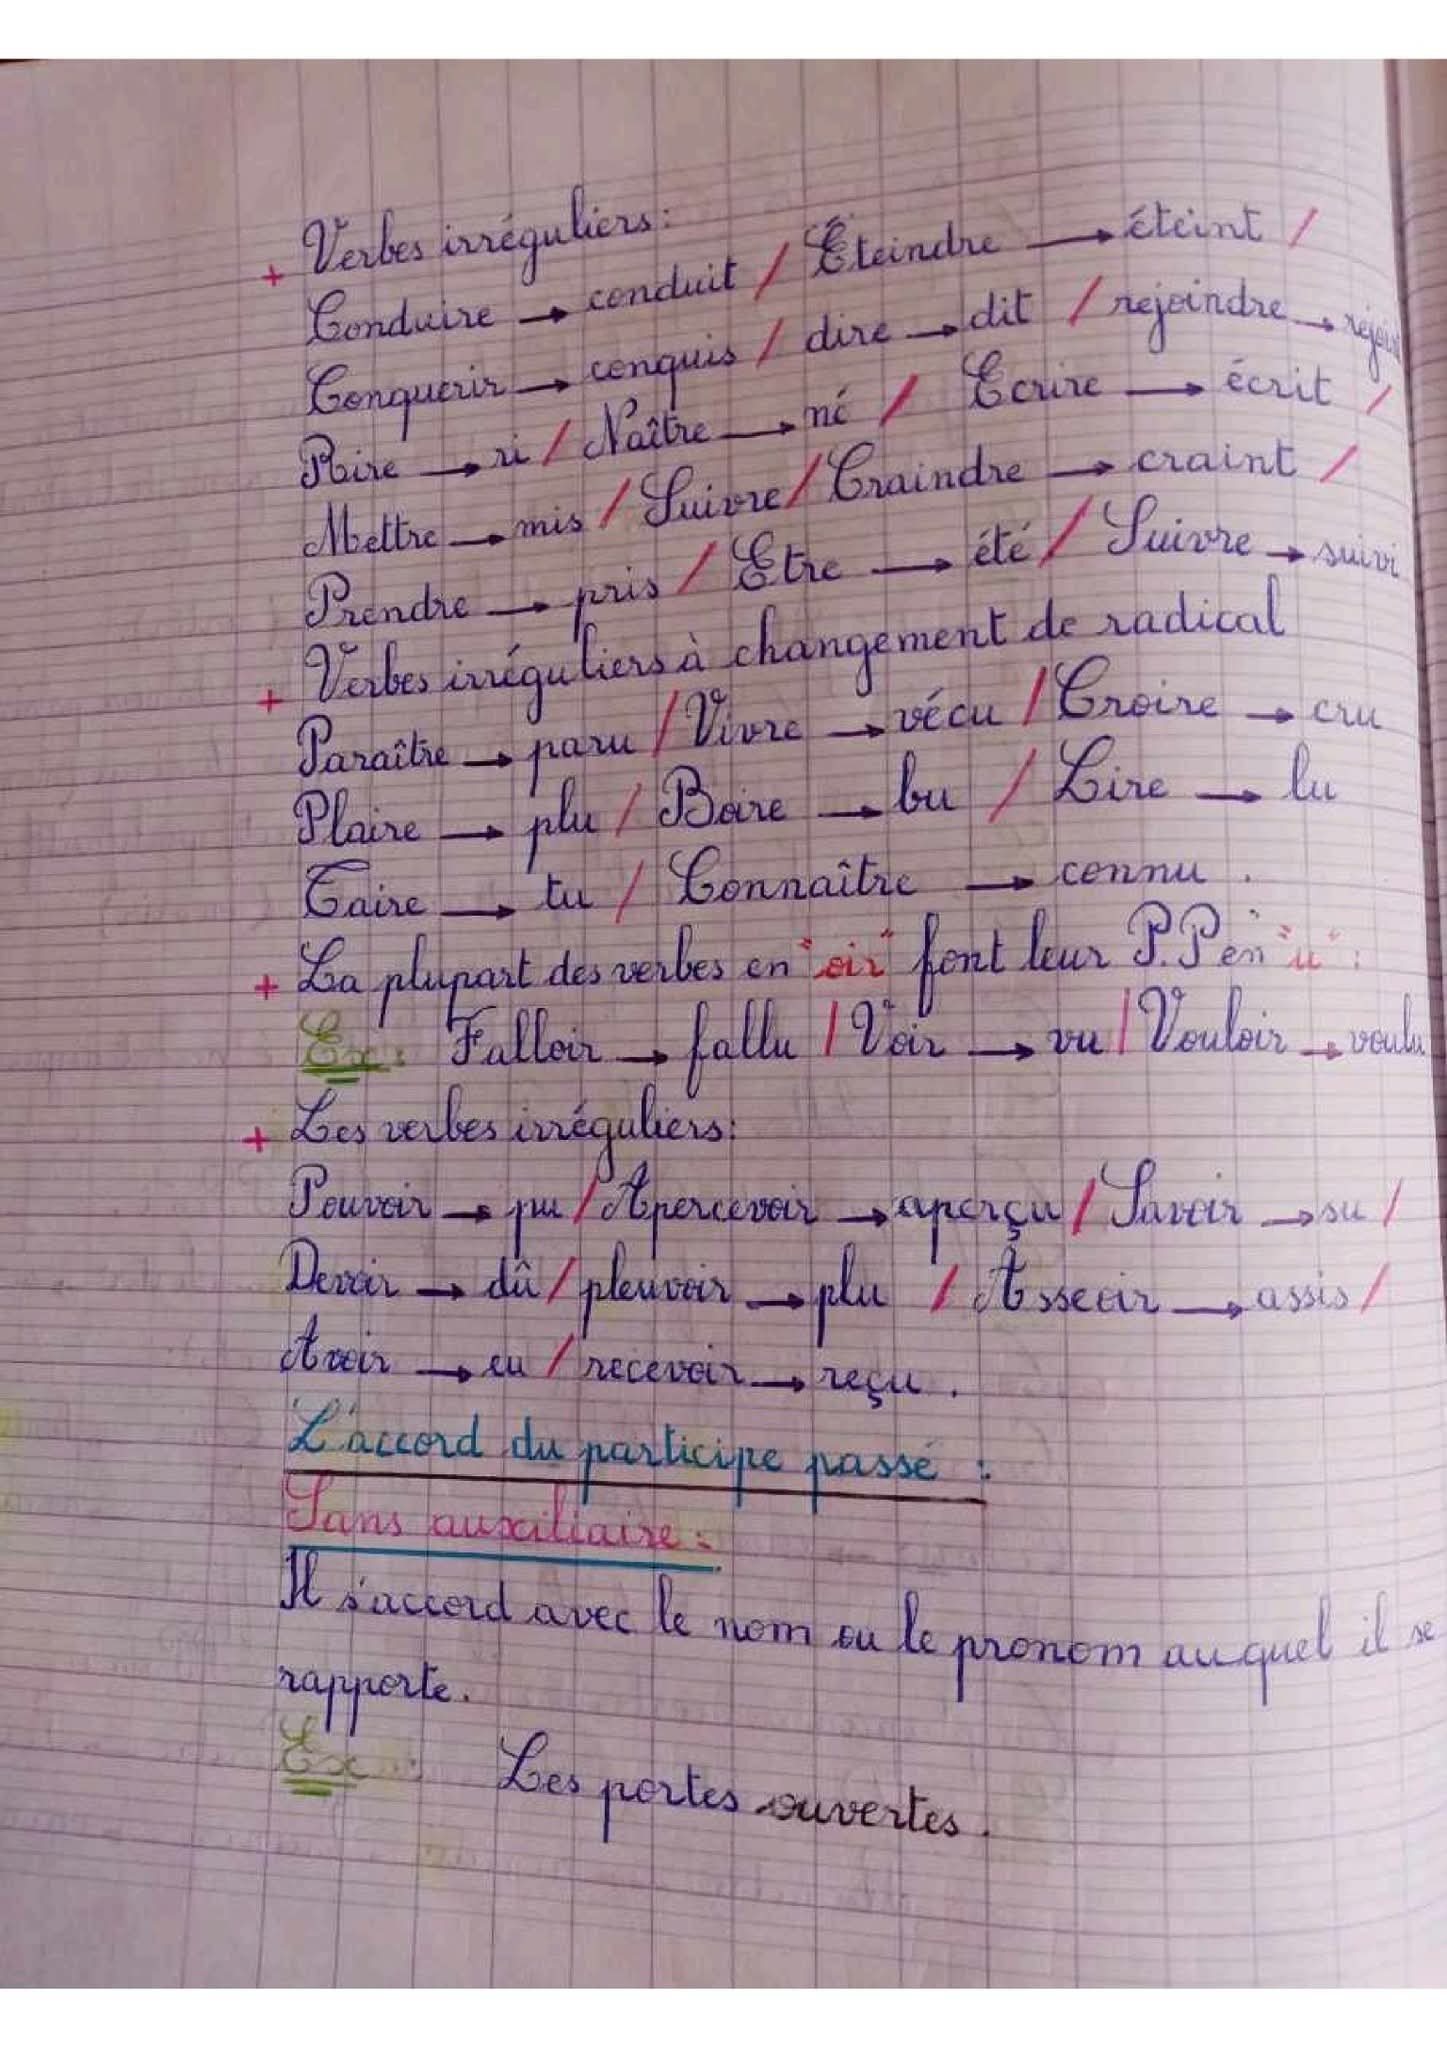 + Verbes irréguliers:
Conduire → conduit / Éteindre → éteint /
Conquerir → conquis / dire → dit / rejoindre → rejoint
Rire → ri / Naître → né / Ecrire → écrit /
Mettre → mis / Suivre / Craindre → craint /
Prendre → pris / Etre → été / Suivre → suivi
+ Verbes irréguliers à changement de radical
Paraître → paru / Vivre → vécu / Croire → cru
Plaire → plu / Boire → bu / Lire → lu
Taire → tu / Connaître → connu .
+ La plupart des verbes en "oir" font leur P.P en "u" :
Ex : Falloir → fallu / Voir → vu / Vouloir → voulu
+ Les verbes irréguliers:
Pouvoir → pu / Apercevoir → aperçu / Savoir → su /
Devoir → dû / pleuvoir → plu / Asseoir → assis /
Avoir → eu / recevoir → reçu .
L'accord du participe passé :
Sans auxiliaire :
Il s'accord avec le nom ou le pronom auquel il se
rapporte.
Ex : Les portes ouvertes.